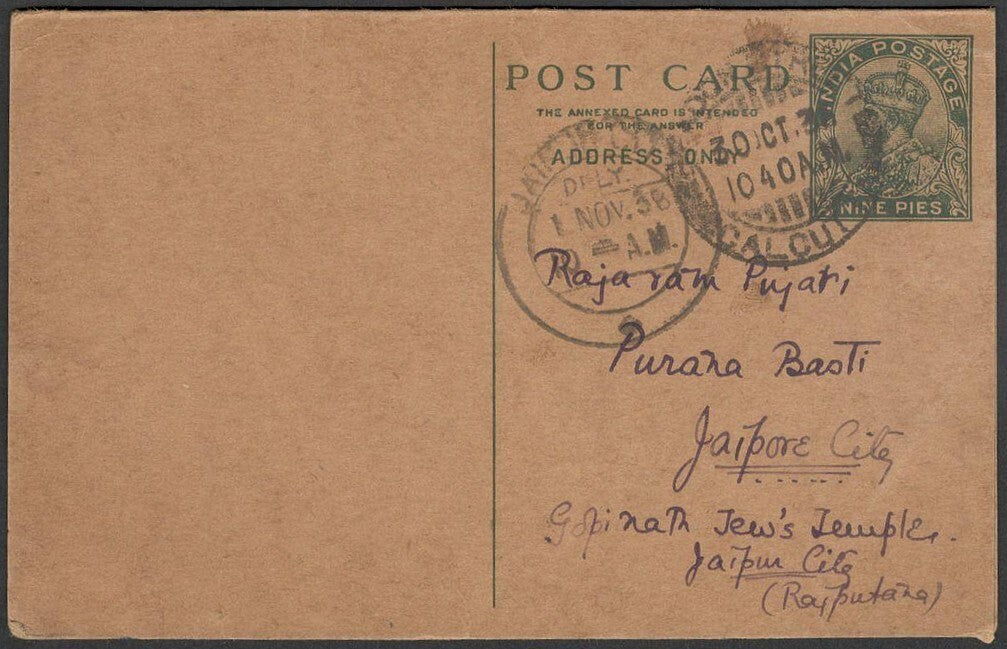 POST CARD
THE ANNEXED CARD IS INTENDED
FOR THE ANSWER
ADDRESS ONLY
INDIA POSTAGE
NINE PIES
30 OCT. 3
10 40 A.M.
CALCUT
DELY.
1 NOV. 36
A.M.
Rajaram Pujari
Purana Basti
Jaipore City
Gopinath Jew's Temple.
Jaipur City
(Rajputana)